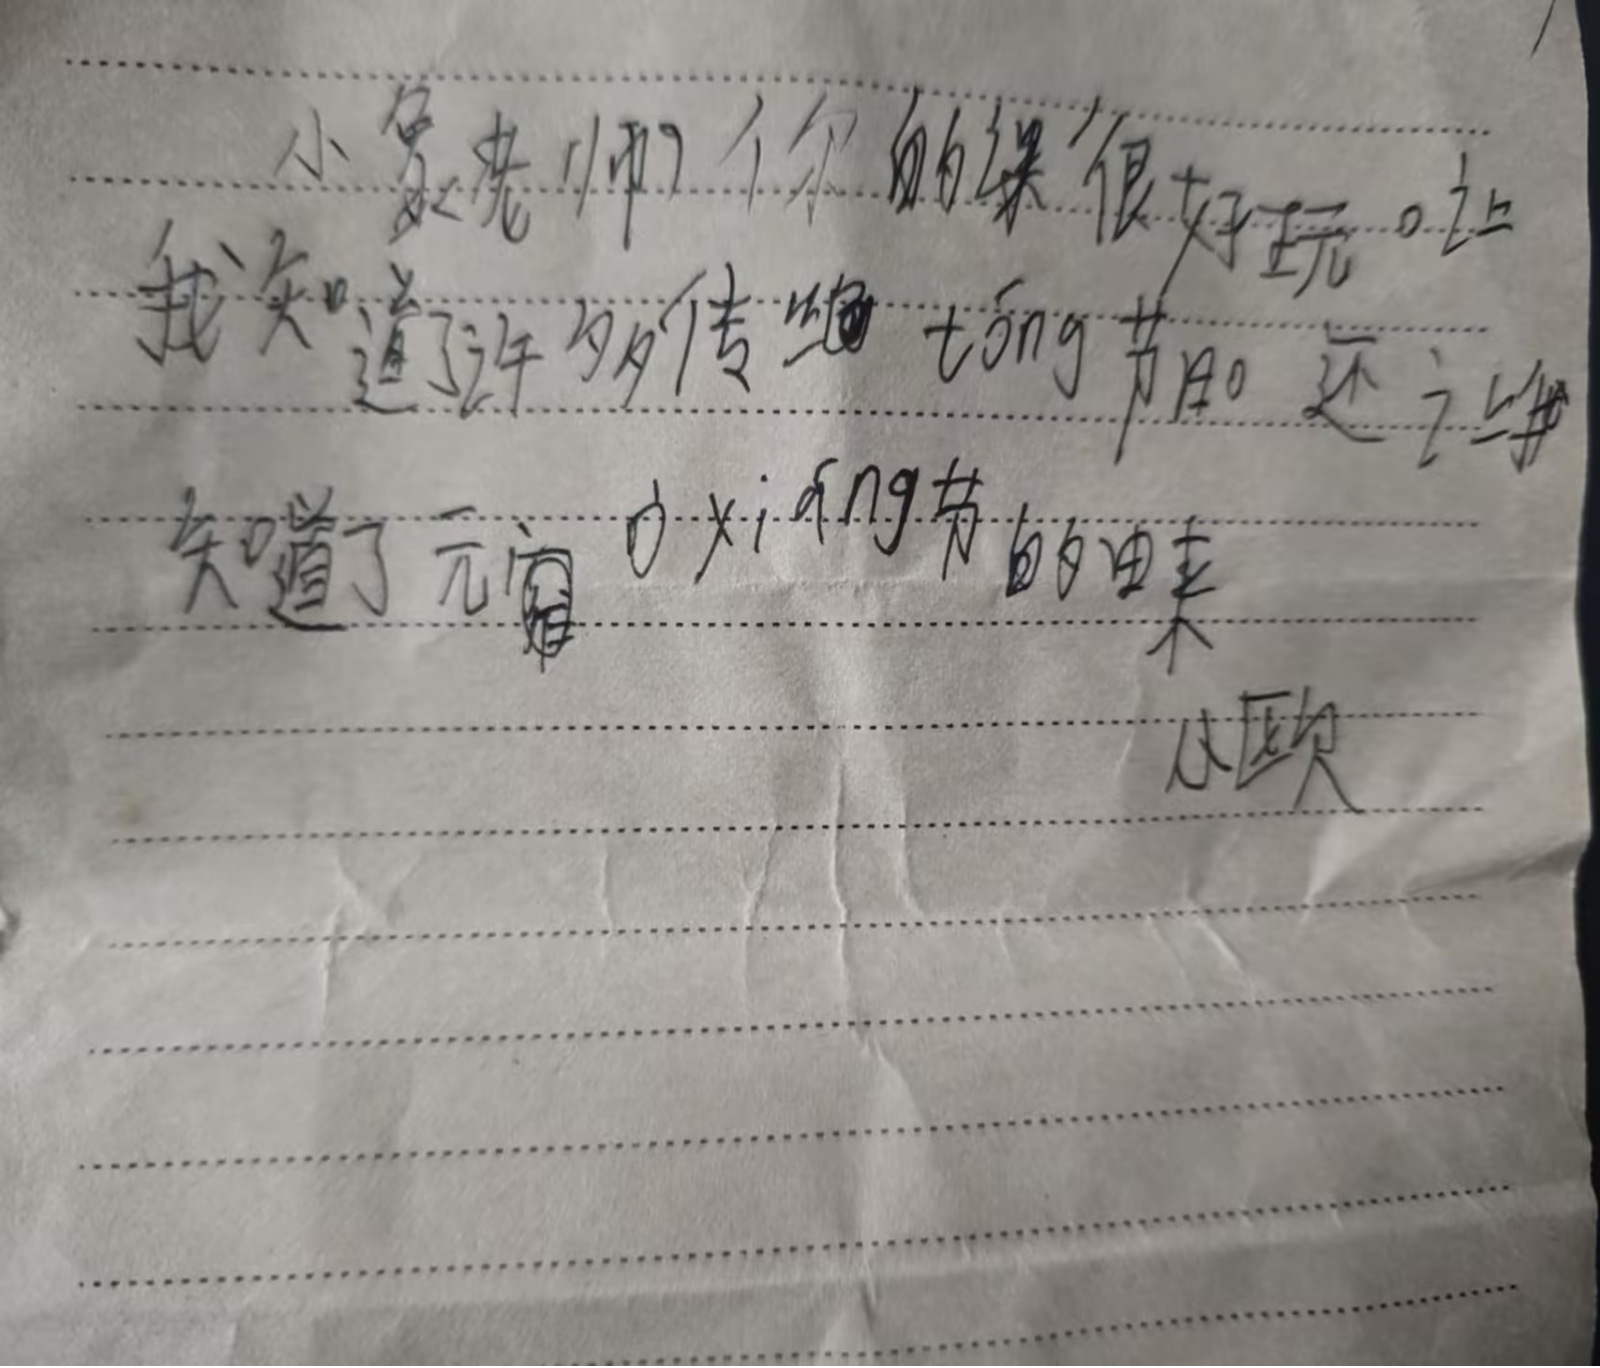 小 老师你的课很好玩。让
我知道了许多传 tǒng 节日。还让我
知道了元 xiāng 节的由来
从欧